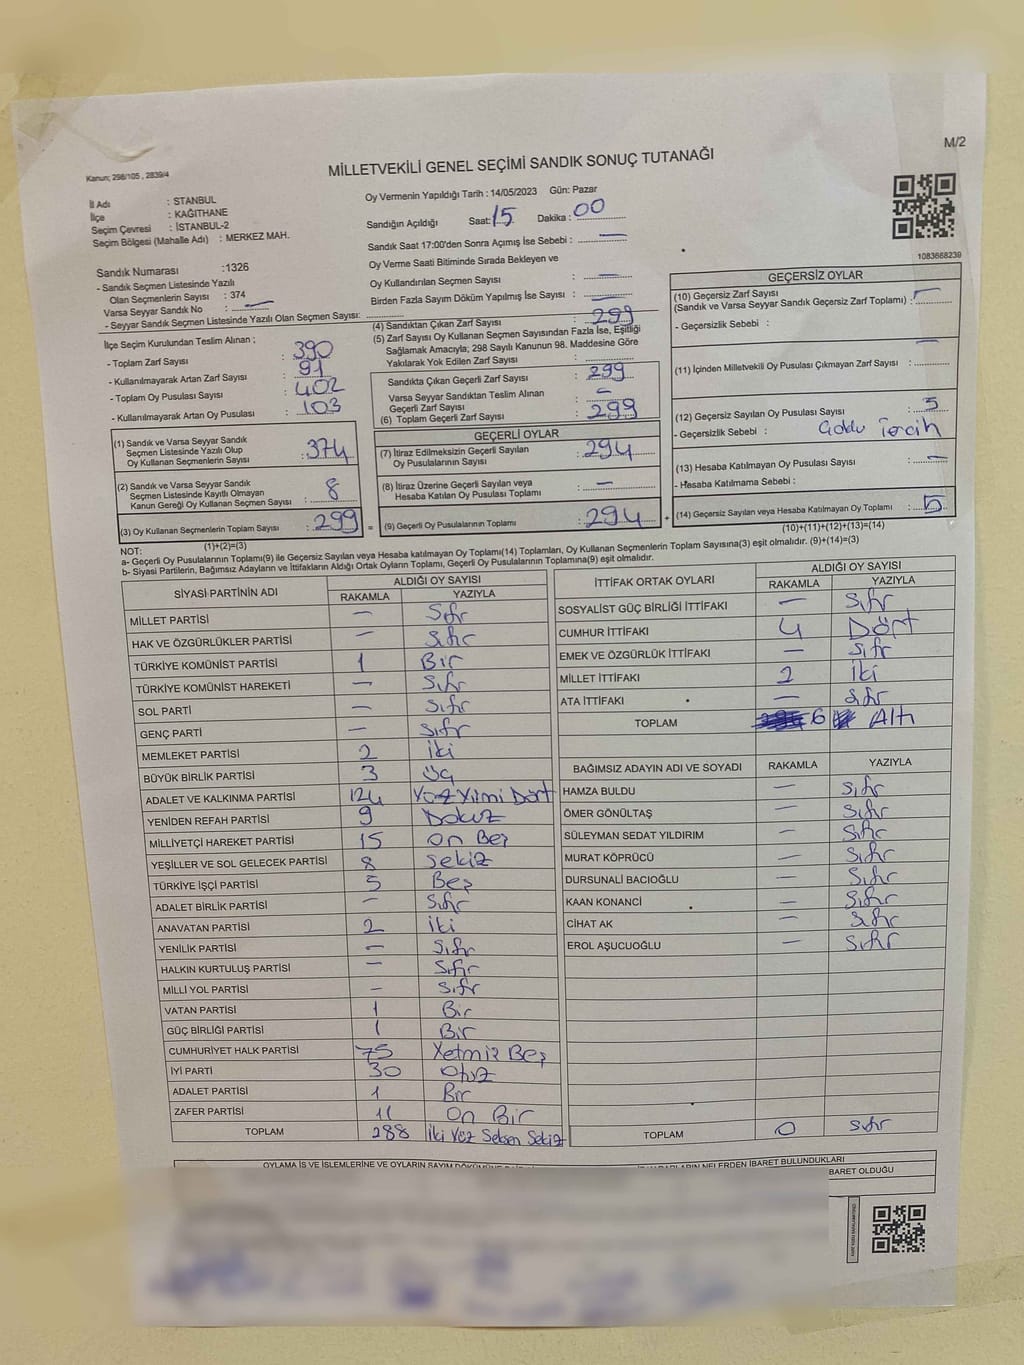 M/2
Kanun; 298/105 , 2839/4
MİLLETVEKİLİ GENEL SEÇİMİ SANDIK SONUÇ TUTANAĞI
İl Adı : STANBUL
İlçe : KAĞITHANE
Seçim Çevresi : İSTANBUL-2
Seçim Bölgesi (Mahalle Adı) : MERKEZ MAH.
Oy Vermenin Yapıldığı Tarih : 14/05/2023 Gün: Pazar
Sandığın Açıldığı Saat: 15 Dakika : 00
Sandık Saat 17:00'den Sonra Açımış İse Sebebi : —
Oy Verme Saati Bitiminde Sırada Bekleyen ve
Oy Kullandırılan Seçmen Sayısı : —
Birden Fazla Sayım Döküm Yapılmış İse Sayısı : —
1083668239
Sandık Numarası :1326
- Sandık Seçmen Listesinde Yazılı
Olan Seçmenlerin Sayısı : 374
Varsa Seyyar Sandık No : —
- Seyyar Sandık Seçmen Listesinde Yazılı Olan Seçmen Sayısı:
İlçe Seçim Kurulundan Teslim Alınan ;
- Toplam Zarf Sayısı : 390
- Kullanılmayarak Artan Zarf Sayısı : 91
- Toplam Oy Pusulası Sayısı : 402
- Kullanılmayarak Artan Oy Pusulası : 103
(1) Sandık ve Varsa Seyyar Sandık
Seçmen Listesinde Yazılı Olup
Oy Kullanan Seçmenlerin Sayısı : 374
(2) Sandık ve Varsa Seyyar Sandık
Seçmen Listesinde Kayıtlı Olmayan
Kanun Gereği Oy Kullanan Seçmen Sayısı : 8
(3) Oy Kullanan Seçmenlerin Toplam Sayısı : 299
(1)+(2)=(3)
(4) Sandıktan Çıkan Zarf Sayısı : 299
(5) Zarf Sayısı Oy Kullanan Seçmen Sayısından Fazla İse, Eşitliği
Sağlamak Amacıyla; 298 Sayılı Kanunun 98. Maddesine Göre
Yakılarak Yok Edilen Zarf Sayısı :
Sandıkta Çıkan Geçerli Zarf Sayısı : 299
Varsa Seyyar Sandıktan Teslim Alınan
Geçerli Zarf Sayısı : —
(6) Toplam Geçerli Zarf Sayısı : 299
GEÇERLİ OYLAR
(7) İtiraz Edilmeksizin Geçerli Sayılan
Oy Pusulalarının Sayısı : 294
(8) İtiraz Üzerine Geçerli Sayılan veya
Hesaba Katılan Oy Pusulası Toplamı : —
= (9) Geçerli Oy Pusulalarının Toplamı : 294 +
GEÇERSİZ OYLAR
(10) Geçersiz Zarf Sayısı
(Sandık ve Varsa Seyyar Sandık Geçersiz Zarf Toplamı) : —
- Geçersizlik Sebebi :
(11) İçinden Milletvekili Oy Pusulası Çıkmayan Zarf Sayısı : —
(12) Geçersiz Sayılan Oy Pusulası Sayısı : 5
- Geçersizlik Sebebi : Çoklu Tercih
(13) Hesaba Katılmayan Oy Pusulası Sayısı : —
- Hesaba Katılmama Sebebi :
(14) Geçersiz Sayılan veya Hesaba Katılmayan Oy Toplamı : 5
(10)+(11)+(12)+(13)=(14)
NOT:
a- Geçerli Oy Pusulalarının Toplamı(9) ile Geçersiz Sayılan veya Hesaba katılmayan Oy Toplamı(14) Toplamları, Oy Kullanan Seçmenlerin Toplam Sayısına(3) eşit olmalıdır. (9)+(14)=(3)
b- Siyasi Partilerin, Bağımsız Adayların ve İttifakların Aldığı Ortak Oyların Toplamı, Geçerli Oy Pusulalarının Toplamına(9) eşit olmalıdır.
SİYASİ PARTİNİN ADI ALDIĞI OY SAYISI
RAKAMLA YAZIYLA
MİLLET PARTİSİ — Sıfır
HAK VE ÖZGÜRLÜKLER PARTİSİ — Sıfır
TÜRKİYE KOMÜNİST PARTİSİ 1 Bir
TÜRKİYE KOMÜNİST HAREKETİ — Sıfır
SOL PARTİ — Sıfır
GENÇ PARTİ — Sıfır
MEMLEKET PARTİSİ 2 İki
BÜYÜK BİRLİK PARTİSİ 3 Üç
ADALET VE KALKINMA PARTİSİ 124 Yüz Yirmi Dört
YENİDEN REFAH PARTİSİ 9 Dokuz
MİLLİYETÇİ HAREKET PARTİSİ 15 On Beş
YEŞİLLER VE SOL GELECEK PARTİSİ 8 Sekiz
TÜRKİYE İŞÇİ PARTİSİ 5 Beş
ADALET BİRLİK PARTİSİ — Sıfır
ANAVATAN PARTİSİ 2 İki
YENİLİK PARTİSİ — Sıfır
HALKIN KURTULUŞ PARTİSİ — Sıfır
MİLLİ YOL PARTİSİ — Sıfır
VATAN PARTİSİ 1 Bir
GÜÇ BİRLİĞİ PARTİSİ 1 Bir
CUMHURİYET HALK PARTİSİ 75 Yetmiz Beş
İYİ PARTİ 30 Otuz
ADALET PARTİSİ 1 Bir
ZAFER PARTİSİ 11 On Bir
TOPLAM 288 İki Yüz Seksen Sekiz
İTTİFAK ORTAK OYLARI ALDIĞI OY SAYISI
RAKAMLA YAZIYLA
SOSYALİST GÜÇ BİRLİĞİ İTTİFAKI — Sıfır
CUMHUR İTTİFAKI 4 Dört
EMEK VE ÖZGÜRLÜK İTTİFAKI — Sıfır
MİLLET İTTİFAKI 2 İki
ATA İTTİFAKI — Sıfır
TOPLAM 6 Altı
BAĞIMSIZ ADAYIN ADI VE SOYADI RAKAMLA YAZIYLA
HAMZA BULDU — Sıfır
ÖMER GÖNÜLTAŞ — Sıfır
SÜLEYMAN SEDAT YILDIRIM — Sıfır
MURAT KÖPRÜCÜ — Sıfır
DURSUNALİ BACIOĞLU — Sıfır
KAAN KONANCİ — Sıfır
CİHAT AK — Sıfır
EROL AŞUCUOĞLU — Sıfır
TOPLAM 0 Sıfır
OYLAMA İŞ VE İŞLEMLERİNE VE OYLARIN SAYIM DÖKÜMÜNE
NELERDEN İBARET BULUNDUKLARI
BARET OLDUĞU